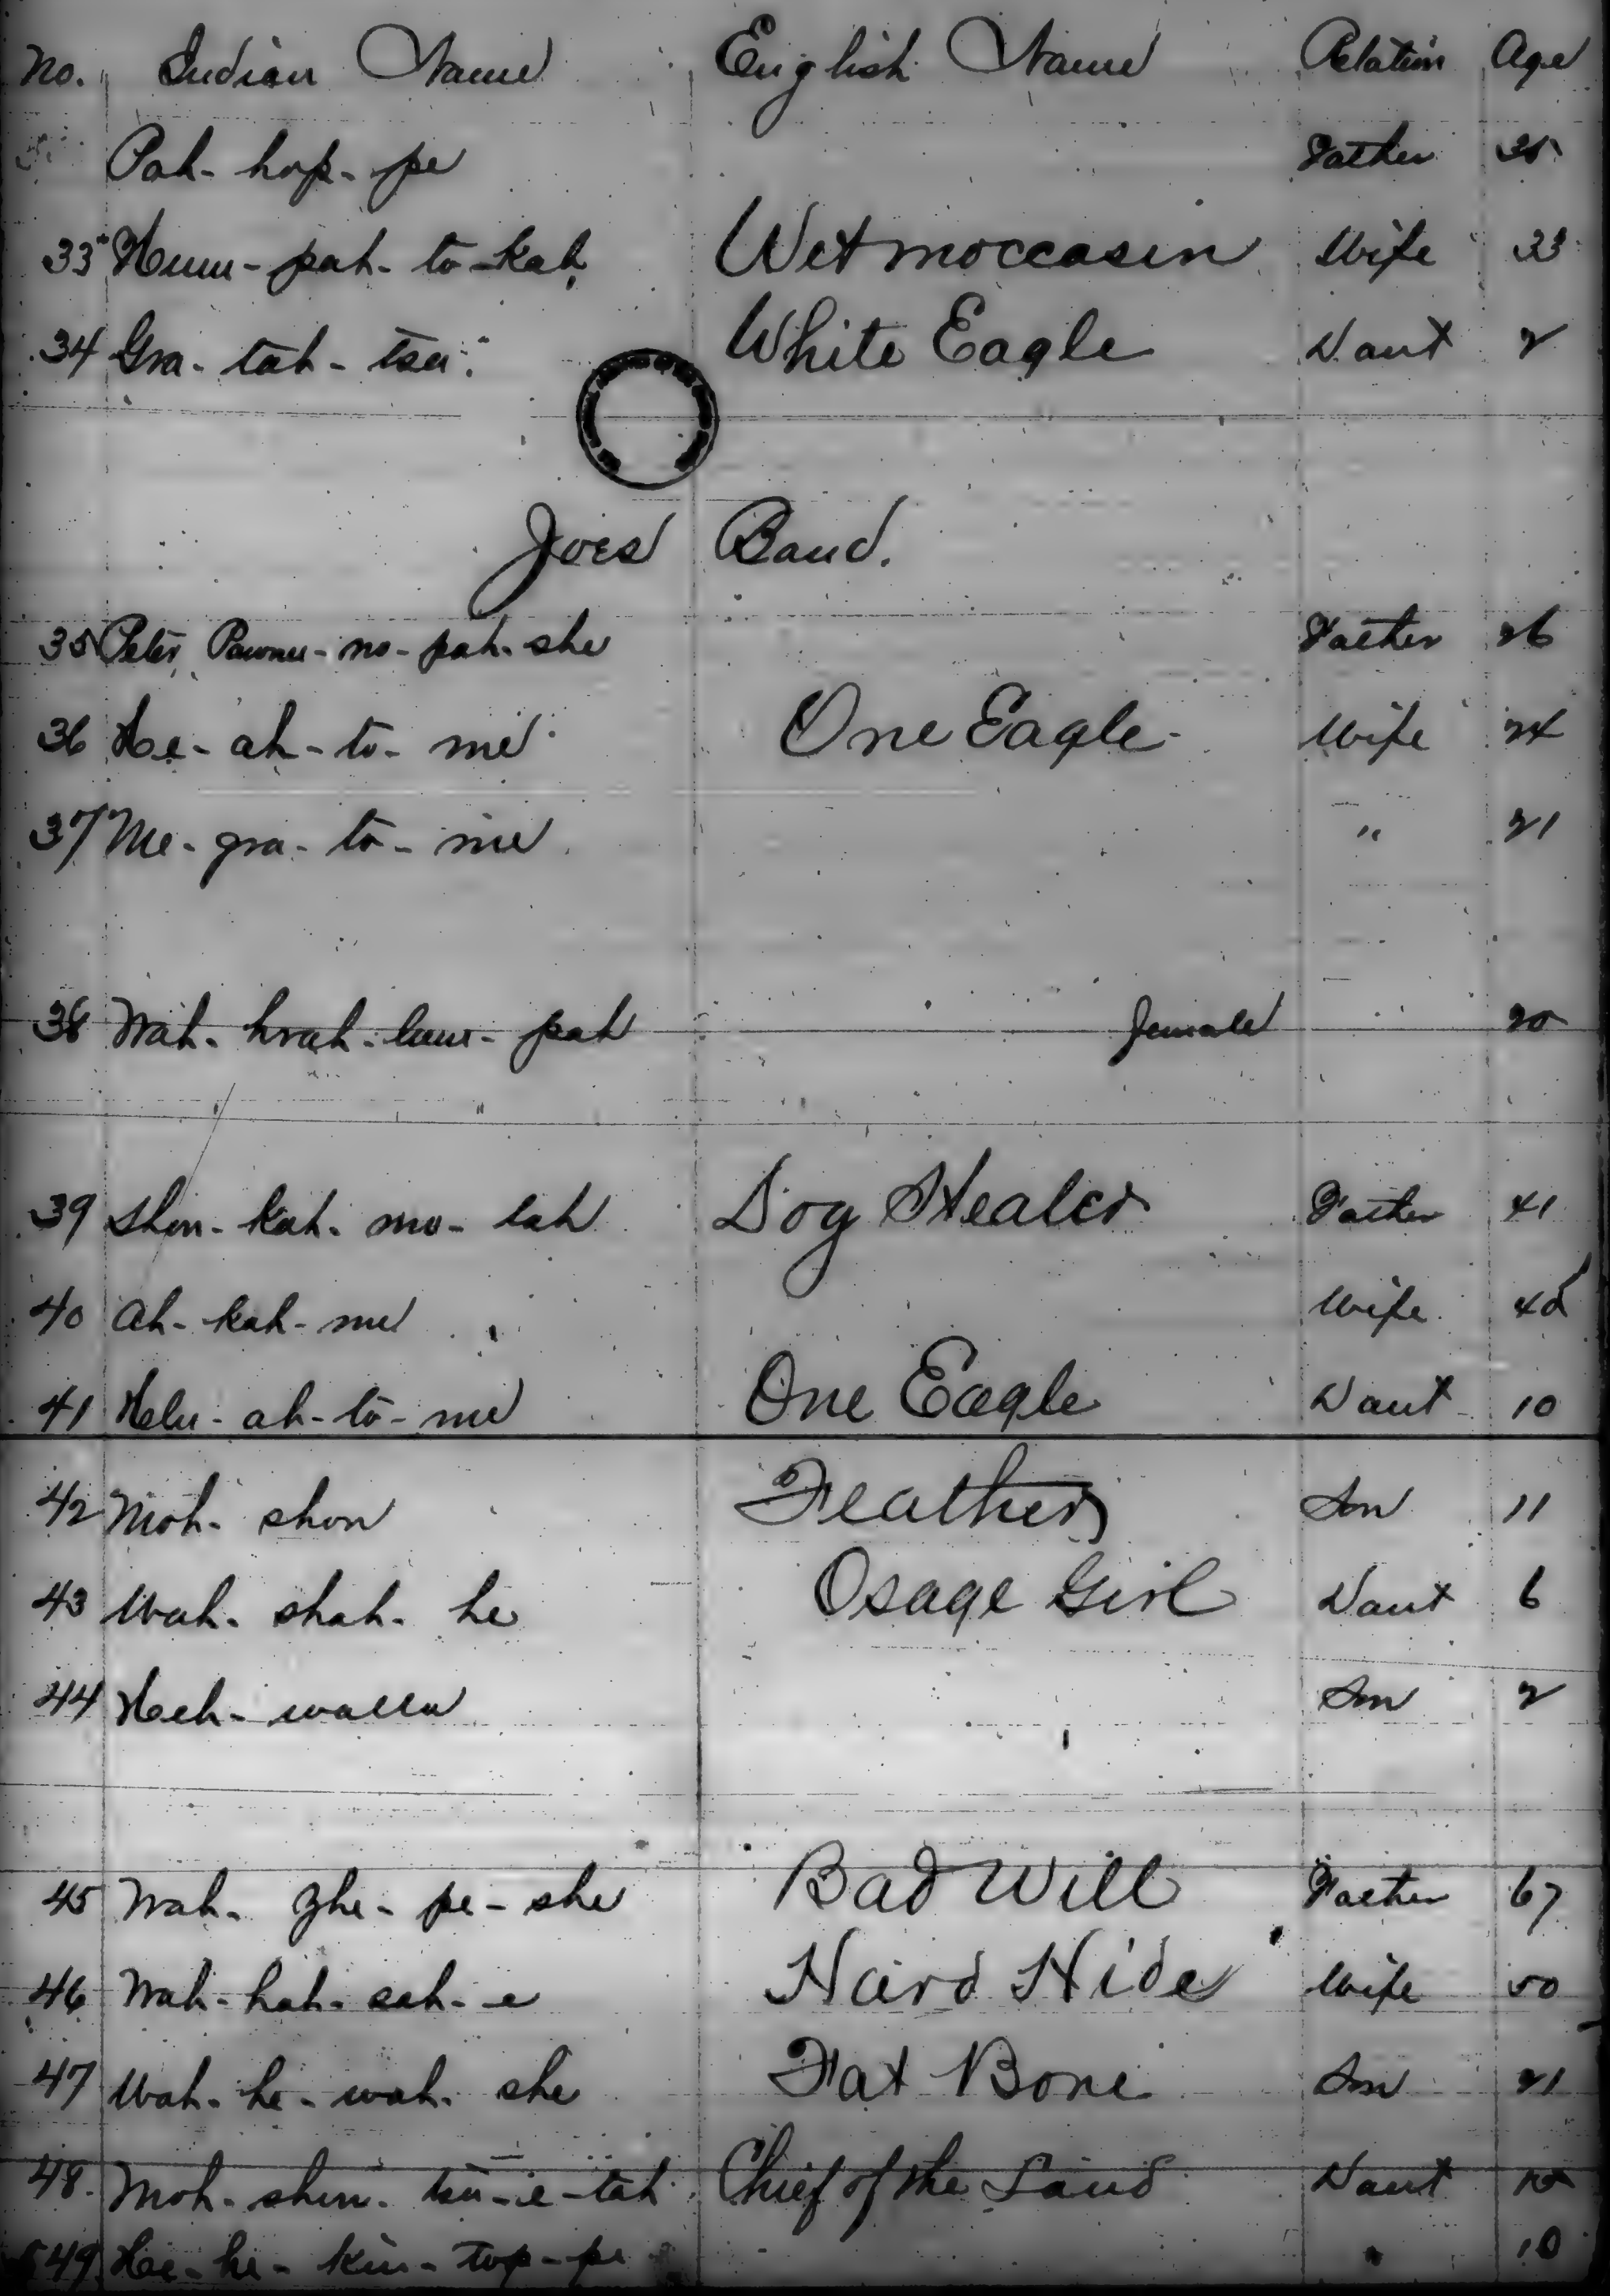 No. Indian Name English Name Relation Age
Pah-hop-pe Father 35
33 Hum-pah-to-kah Wet moccasin Wife 33
34 Gra-tah-tsa White Eagle Daut 2
Joes Band.
35 Peter Pawnee-no-pah-she Father 26
36 He-ah-to-me One Eagle Wife 24
37 Me-gra-to-me " 21
38 Wah-hrah-lum-pah female 20
39 Shon-kah-mo-lah Dog Stealer Father 41
40 Ah-kah-me Wife
41 ah-to-me One Eagle Daut 10
42 Moh-shon Feather Son 11
43 Wah-shah-he Osage Girl Daut 6
44 Son 2
45 Wah-zhe-pe-she Bad Will Father 67
46 Wah-hah-sah-e Hard Hide Wife 50
47 Wah-he-wah-she Fat Bone Son 21
48 Moh-shon-tsa-e-tah Chief of the Land Daut
49 He-he-kin-top-pe " 10